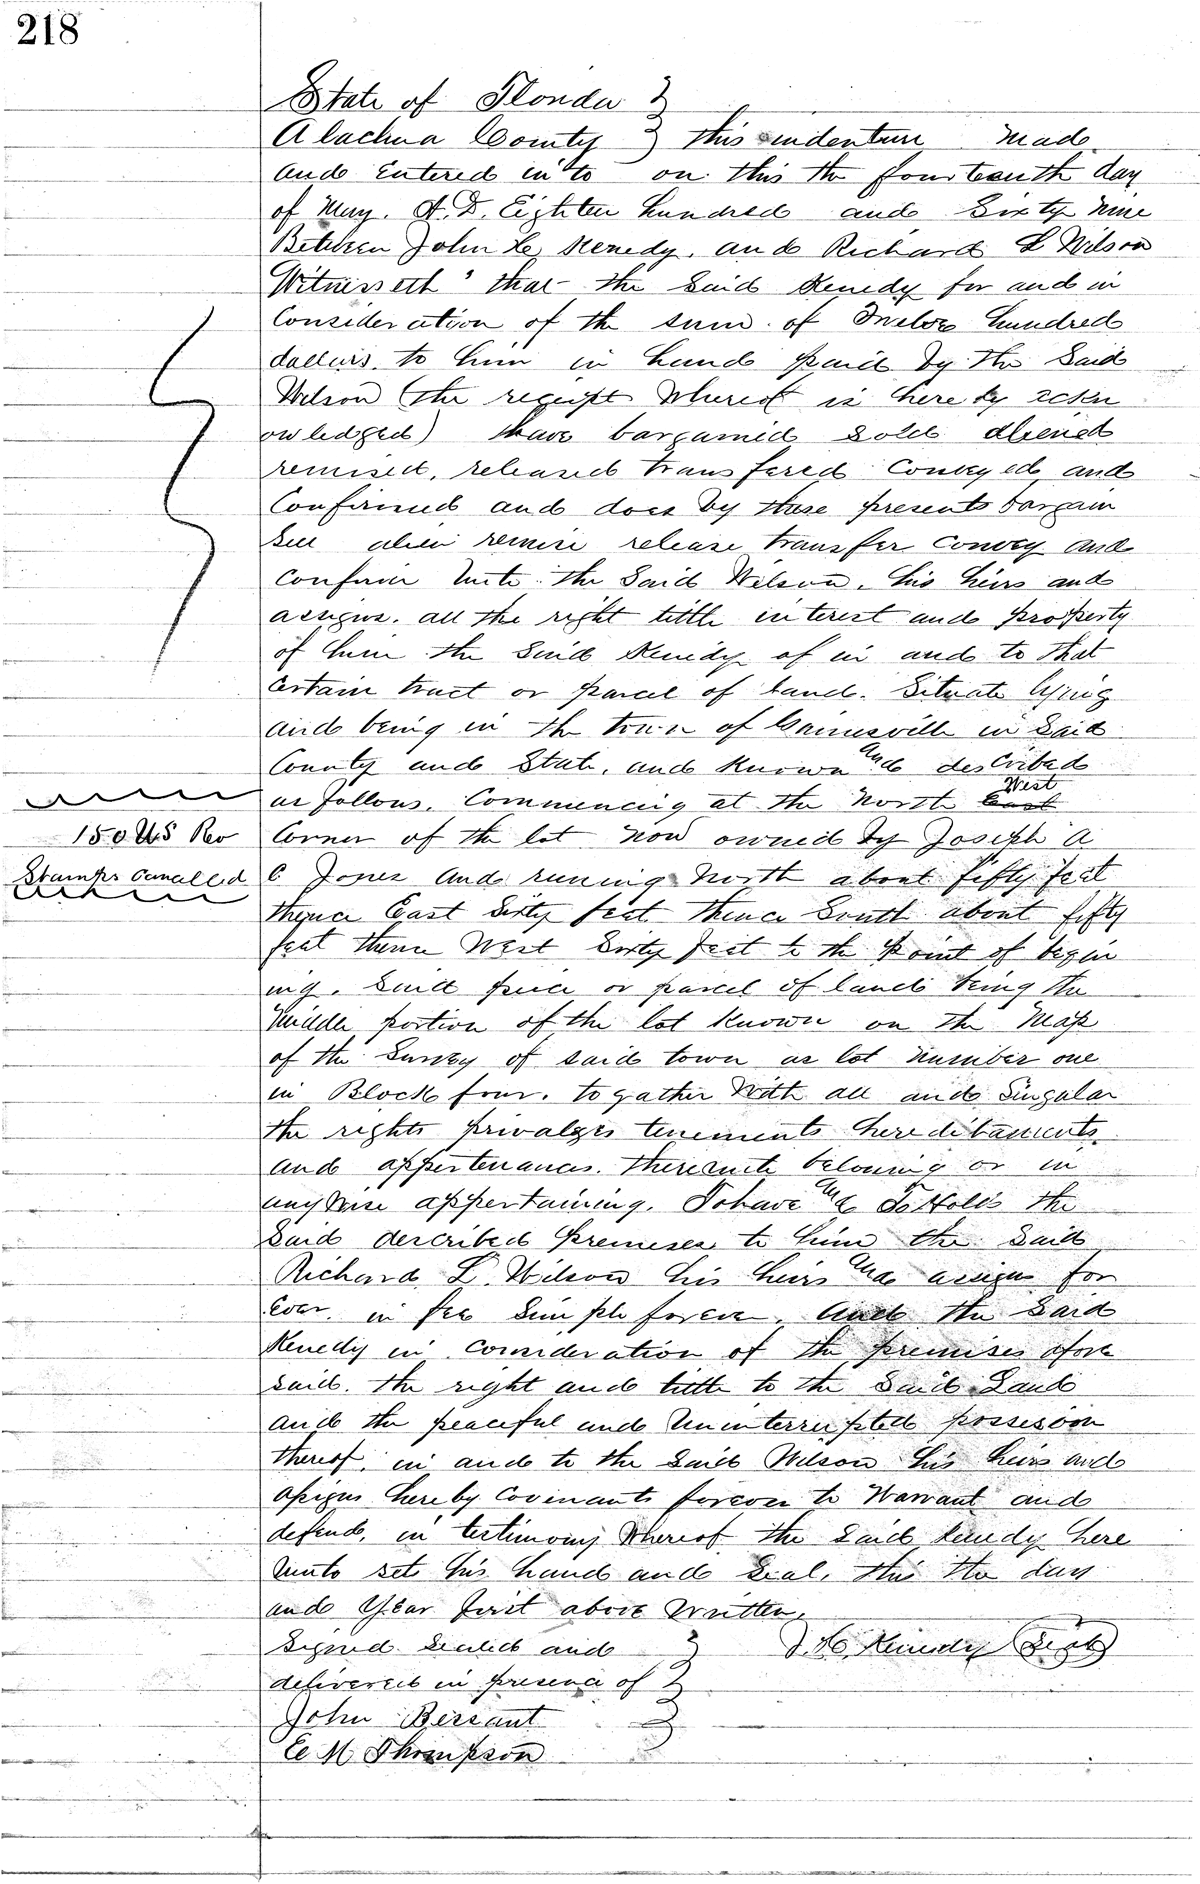 218
State of Florida }
Alachua County } this indenture Made
and Entered into on this the fourteenth day
of May. A.D. Eighten hundred and Sixty Nine
Between John H. Kenedy. and Richard L Wilson
Witnesseth that the Said Kenedy for and in
Consideration of the sum of Twelve hundred
dollars. to him in hand paid by the Said
Wilson (the receipt Whereof is hereby ackn
owledged) have bargained Sold aliened
remised, released transfered Conveyed and
Confirmed and does by these presents bargain
Sell alien remise release transfer Convey and
Confirm Unto the Said Wilson. his heirs and
assigns. all the right tittle interest and property
of him the Said Kenedy of in and to that
Certain tract or parcel of land. Situate lying
and being in the town of Gainesville in Said
County and State. and Known and described
as follows. Commencing at the North East West
150 US Rev
Stamps Cancelled
Corner of the lot now owned by Joseph A
C Jones and runing North about fifty feet
thence East Sixty feet thence South about fifty
feet thence West Sixty feet to the Point of begin
ing. Said piece or parcel of land being the
Middle portion of the lot Known on the Map
of the Survey of said town as lot Number one
in Block four. togather With all and Singular
the rights privalges tenements hereditaments
and appertenances. thereunto belonging or in
anyWise appertaining. To have and To Hold the
Said described Premises to him the Said
Richard L. Wilson his heirs and assigns for
ever. in fee Simple forever. And the Said
Kenedy in Consideration of the premises afore
said. the right and tittle to the Said Land
and the peaceful and Uninterrupted possession
thereof. in and to the Said Wilson his heirs and
assigns hereby Covenants forever to Warrant and
defend. in testimony Whereof the Said Kenedy here
Unto set his hand and Seal. this the day
and Year first above Written.
Signed Sealed and } J. H. Kenedy (Seal)
delivered in presence of }
John Bessant }
E M Thompson